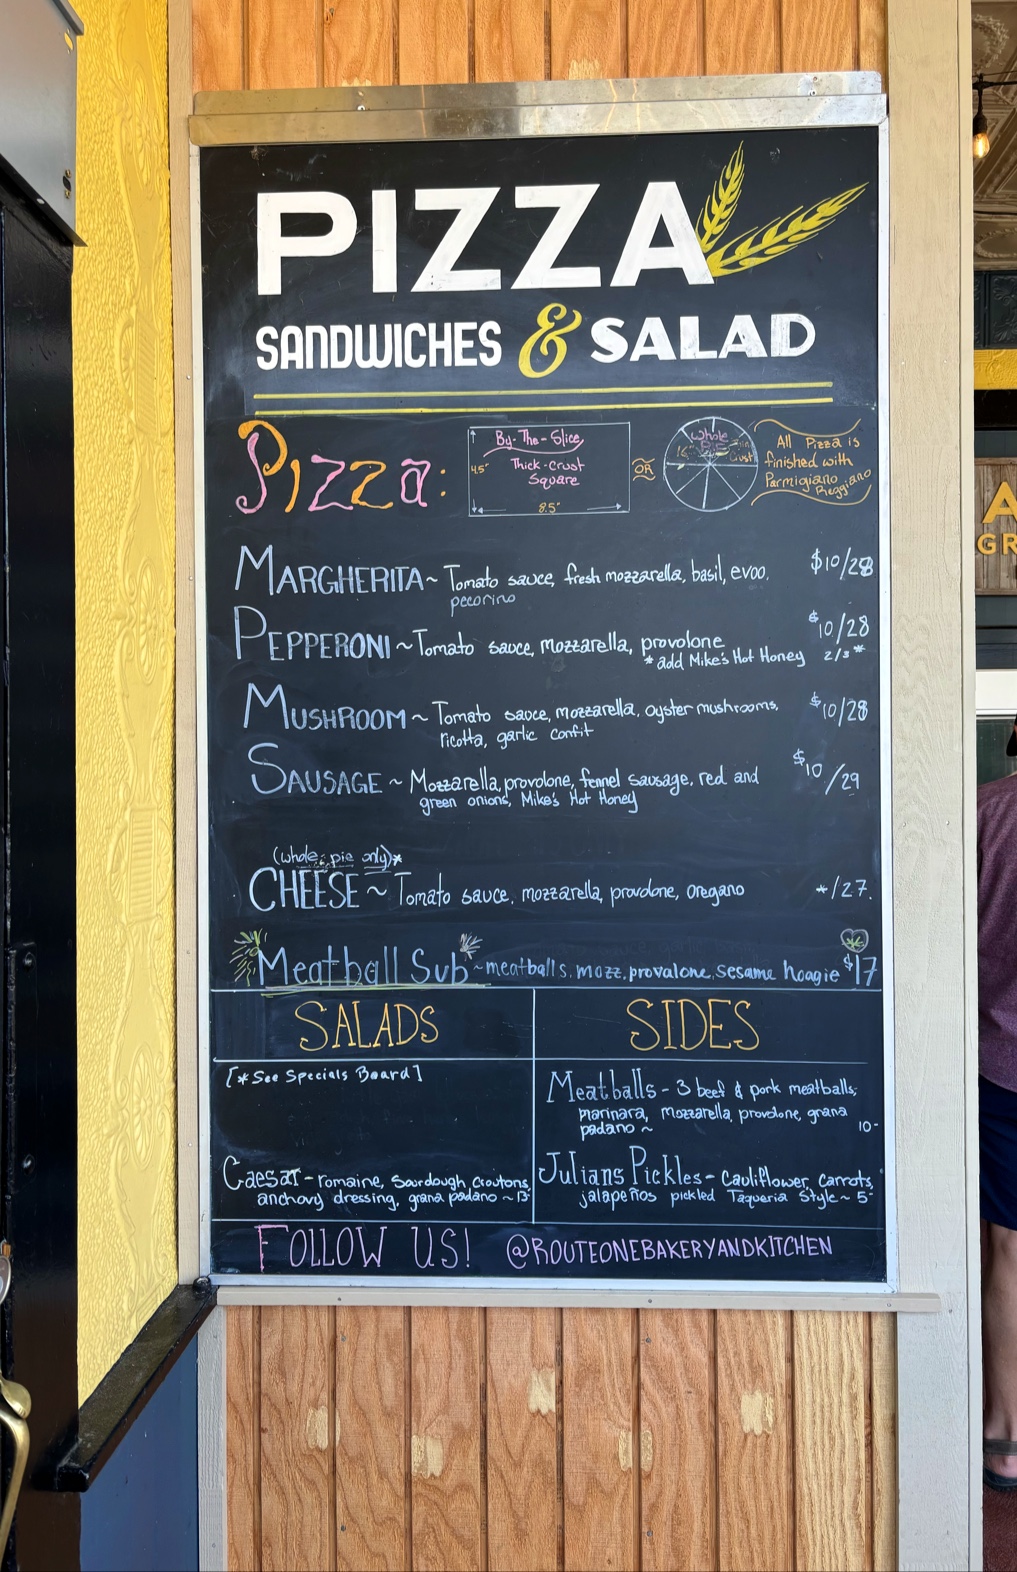 PIZZA
SANDWICHES & SALAD
Pizza:
By-The-Slice,
Thick-Crust
Square
4.5"
8.5"
OR
Whole
Pie
16"
Thin
Crust
All Pizza is
finished with
Parmigiano
Reggiano
MARGHERITA~ Tomato sauce, fresh mozzarella, basil, evoo, $10/28
pecorino
PEPPERONI ~ Tomato sauce, mozzarella, provolone $10/28
*add Mike's Hot Honey 2/3*
MUSHROOM ~ Tomato sauce, mozzarella, oyster mushrooms, $10/28
ricotta, garlic confit
SAUSAGE ~ Mozzarella, provolone, fennel sausage, red and $10/29
green onions, Mike's Hot Honey
(whole pie only)*
CHEESE ~ Tomato sauce, mozzarella, provolone, oregano */27.
Meatball Sub ~ meatballs, mozz, provalone, sesame hoagie $17
SALADS
[*See Specials Board]
Caesar - romaine, Sourdough Croutons,
anchovy dressing, grana padano ~ 13-
SIDES
Meatballs - 3 beef & pork meatballs,
marinara, mozzarella, provolone, grana
padano ~ 10-
Julians Pickles - Cauliflower, carrots,
jalapeños pickled Taqueria Style ~ 5-
FOLLOW US! @ROUTEONEBAKERYANDKITCHEN
A
GR